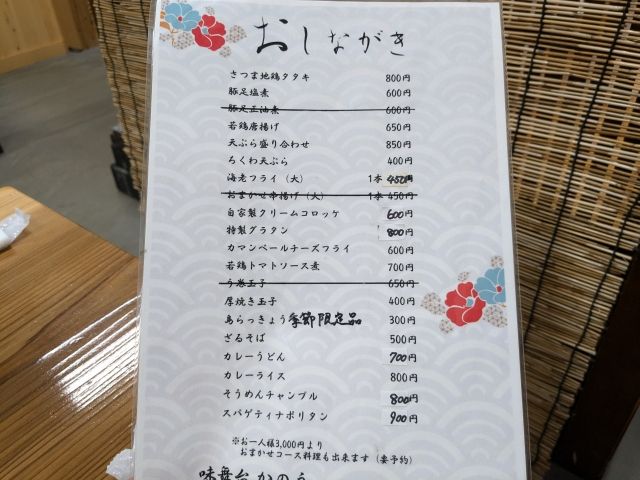 おしながき
さつま地鶏タタキ 800円
豚足塩煮 600円
豚足正油煮 600円
若鶏唐揚げ 650円
天ぷら盛り合わせ 850円
ちくわ天ぷら 400円
海老フライ（大） 1本 450円
おまかせ串揚げ（大） 1本 450円
自家製クリームコロッケ 600円
特製グラタン 800円
カマンベールチーズフライ 600円
若鶏トマトソース煮 700円
う巻玉子 650円
厚焼き玉子 400円
島らっきょう 季節限定品 300円
ざるそば 500円
カレーうどん 700円
カレーライス 800円
そうめんチャンプル 800円
スパゲティナポリタン 900円
※お一人様3,000円より
おまかせコース料理も出来ます（要予約）
味舞台 かのう